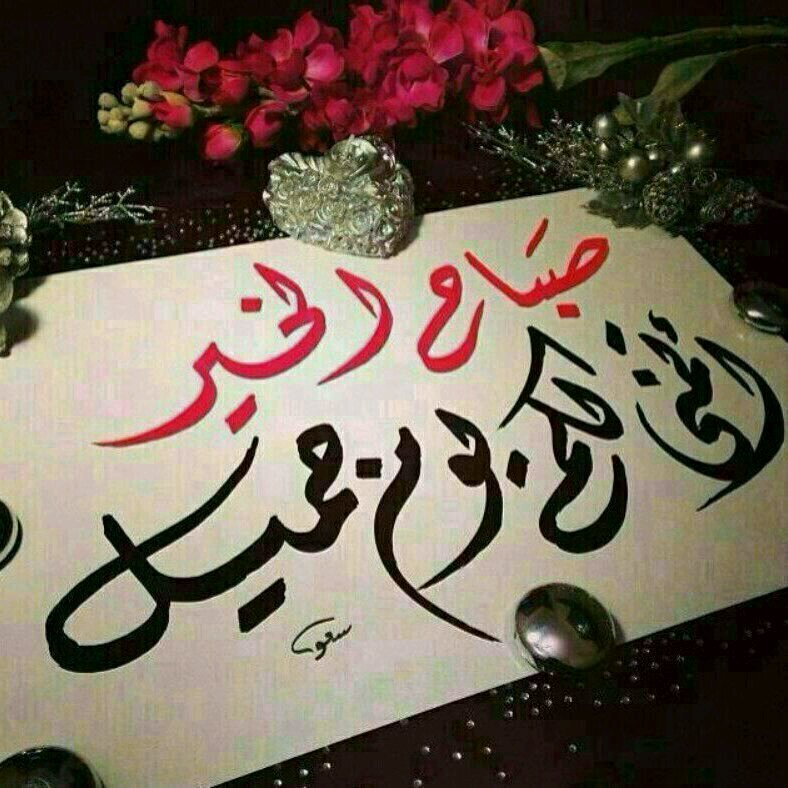 صباح الخير
اتمنى لكم يوم جميل
سعود